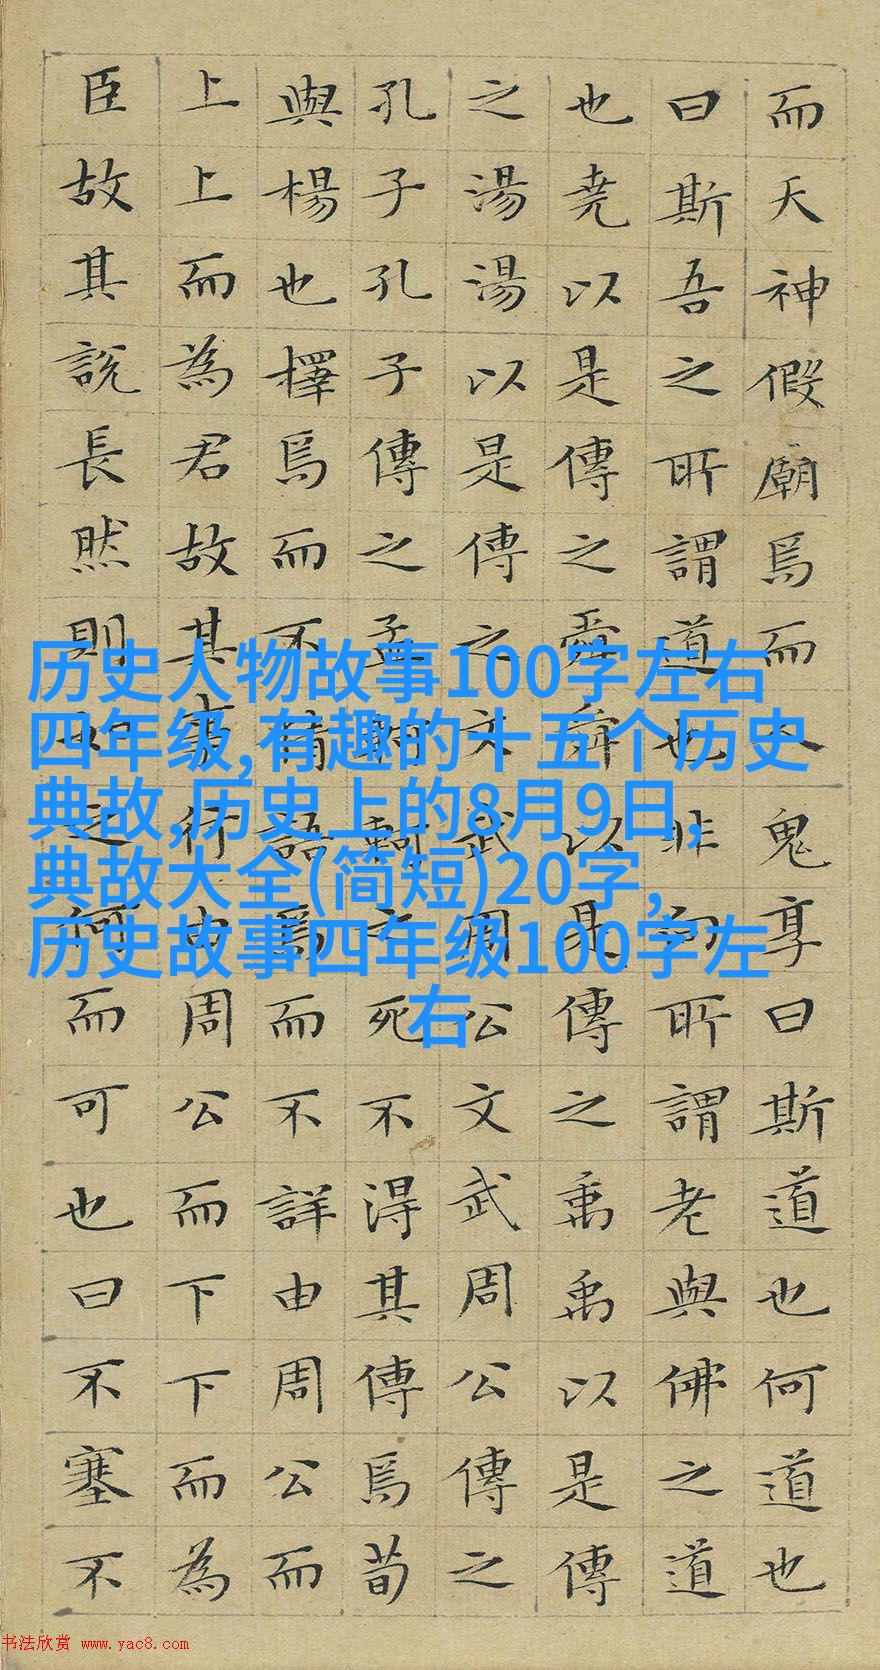 而天神假廟焉而人鬼享曰斯道也何道也
曰斯吾之所謂道也非向所謂老與佛之道
也堯以是傳之舜舜以是傳之禹禹以是傳
之湯湯以是傳之文武周公文武周公傳之
孔子孔子傳之孟軻軻之死不得其傳焉荀
與楊也擇焉而不精語焉而不詳由周公而
上上而為君故其事行由周公而下下而為
臣故其說長然則如之何而可也曰不塞不
历史人物故事100字左右
四年级,有趣的十五个历史
典故,历史上的8月9日,
典故大全(简短)20字,
历史故事四年级100字左
右
书法欣赏 www.yac8.com